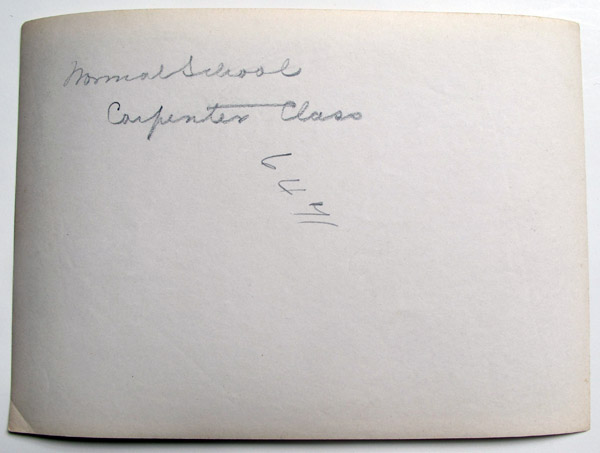 Normal School
Carpenter Class